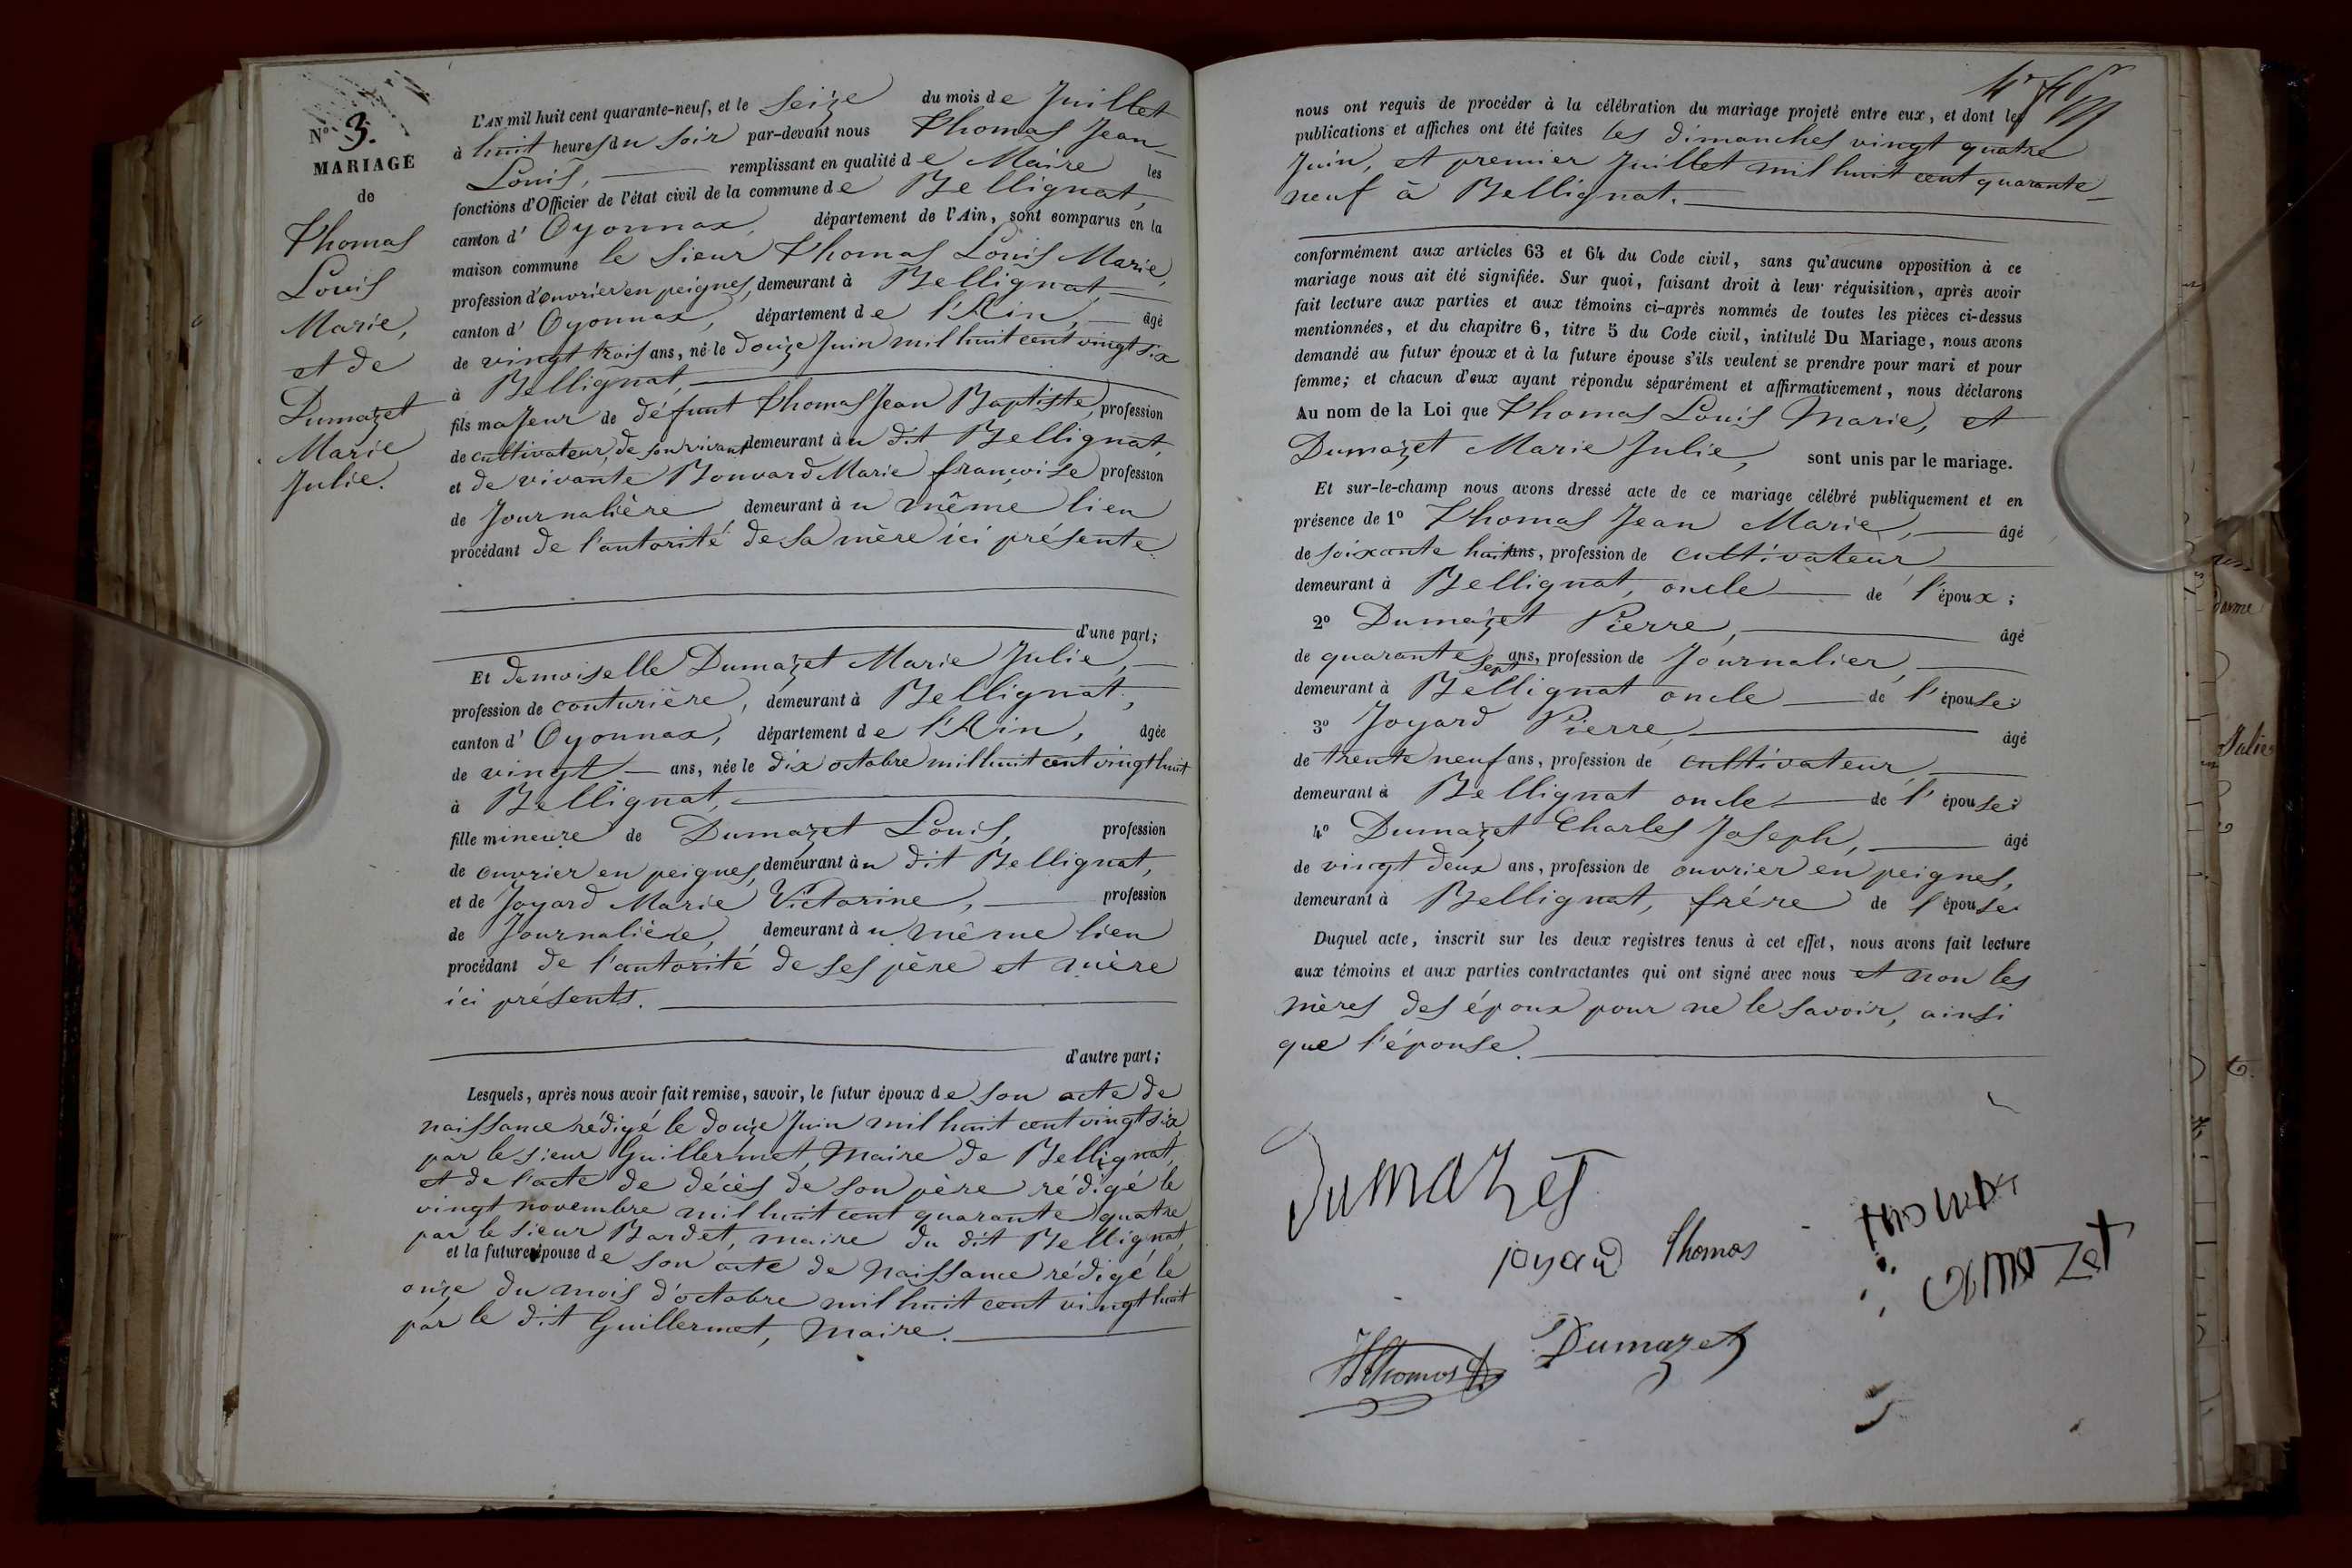 N° 3.
MARIAGE
de
Thomas
Louis
Marie,
et de
Dumazet
Marie
Julie.
L'AN mil huit cent quarante-neuf, et le seize du mois de Juillet
à huit heures du soir par-devant nous Thomas Jean
Louis, remplissant en qualité de Maire les
fonctions d'Officier de l'état civil de la commune de Bellignat,
canton d' Oyonnax, département de l'Ain, sont comparus en la
maison commune le sieur Thomas Louis Marie,
profession d'ouvrier en peignes, demeurant à Bellignat,
canton d' Oyonnax, département de l'Ain, âgé
de vingt trois ans, né le douze Juin mil huit cent vingt six
à Bellignat,
fils majeur de défunt Thomas Jean Baptiste, profession
de cultivateur, de son vivant demeurant à u dit Bellignat,
et de vivante Bouvard Marie françoise profession
de Journalière demeurant à u même lieu
procédant de l'autorité de sa mère ici présente.
d'une part;
Et demoiselle Dumazet Marie Julie,
profession de couturière, demeurant à Bellignat,
canton d' Oyonnax, département de l'Ain, âgée
de vingt ans, née le dix octobre mil huit cent vingt huit
à Bellignat,
fille mineure de Dumazet Louis, profession
de ouvrier en peignes, demeurant à u dit Bellignat,
et de Joyard Marie Victorine, profession
de Journalière, demeurant à u même lieu
procédant de l'autorité de ses père et mère
ici présents.
d'autre part;
Lesquels, après nous avoir fait remise, savoir, le futur époux de son acte de
naissance rédigé le douze Juin mil huit cent vingt six
par le sieur Guillermet, Maire de Bellignat,
et de l'acte de décès de son père rédigé le
vingt novembre mil huit cent quarante quatre
par le sieur Bardet, maire du dit Bellignat,
et la future épouse de son acte de naissance rédigé le
onze du mois d'octobre mil huit cent vingt huit
par le dit Guillermet, Maire.
nous ont requis de procéder à la célébration du mariage projeté entre eux, et dont les
publications et affiches ont été faites les dimanches vingt quatre
Juin, et premier Juillet mil huit cent quarante
neuf à Bellignat.
conformément aux articles 63 et 64 du Code civil, sans qu'aucune opposition à ce
mariage nous ait été signifiée. Sur quoi, faisant droit à leur réquisition, après avoir
fait lecture aux parties et aux témoins ci-après nommés de toutes les pièces ci-dessus
mentionnées, et du chapitre 6, titre 5 du Code civil, intitulé Du Mariage, nous avons
demandé au futur époux et à la future épouse s'ils veulent se prendre pour mari et pour
femme; et chacun d'eux ayant répondu séparément et affirmativement, nous déclarons
Au nom de la Loi que Thomas Louis Marie, et
Dumazet Marie Julie, sont unis par le mariage.
Et sur-le-champ nous avons dressé acte de ce mariage célébré publiquement et en
présence de 1° Thomas Jean Marie, âgé
de soixante huit ans, profession de cultivateur
demeurant à Bellignat, oncle de l'époux;
2° Dumazet Pierre, âgé
de quarante sept ans, profession de Journalier,
demeurant à Bellignat oncle de l'épouse;
3° Joyard Pierre, âgé
de trente neuf ans, profession de cultivateur,
demeurant à Bellignat oncle de l'épouse;
4° Dumazet Charles Joseph, âgé
de vingt deux ans, profession de ouvrier en peignes,
demeurant à Bellignat, frère de l'épouse.
Duquel acte, inscrit sur les deux registres tenus à cet effet, nous avons fait lecture
aux témoins et aux parties contractantes qui ont signé avec nous et non les
mères des époux pour ne le savoir, ainsi
que l'épouse.
Dumazet
thomas
joyard Thomas
Dumazet
Thomas